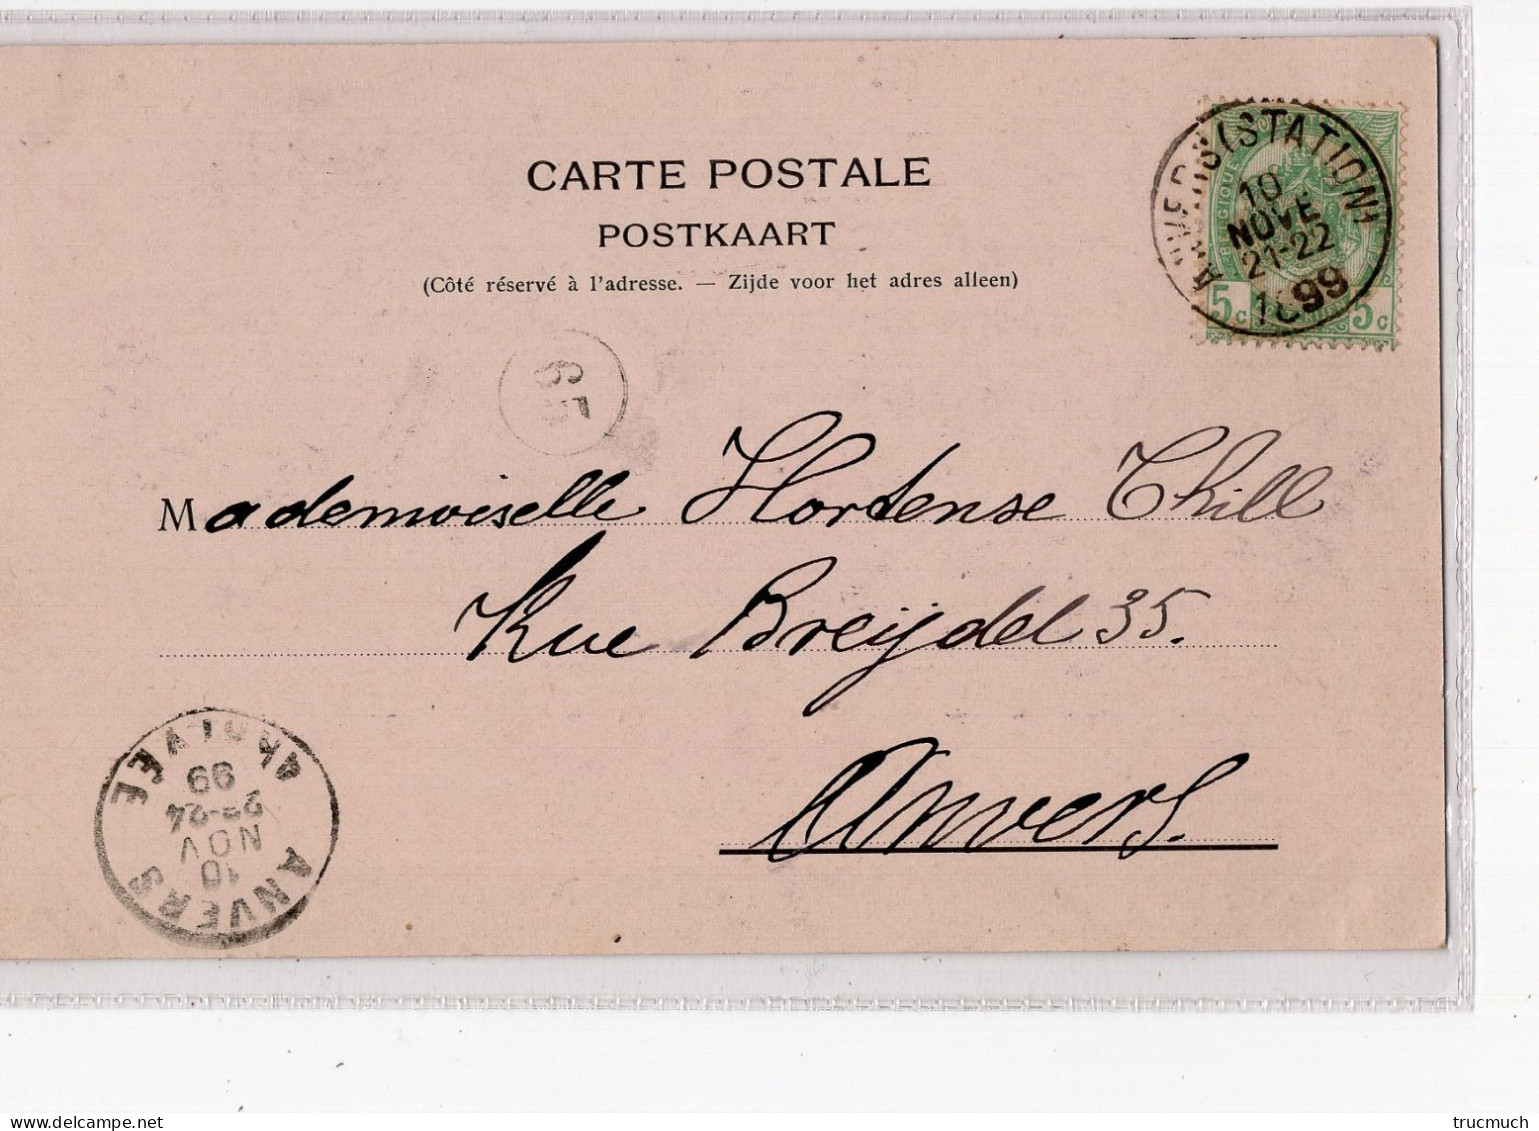 CARTE POSTALE
POSTKAART
(Côté réservé à l'adresse. — Zijde voor het adres alleen)
ANVERS (STATION)
10
NOVE
21-22
1899
BELGIQUE
5c 5c
Mademoiselle Hortense Thill
Rue Breijdel 35.
Anvers.
ARRIVEE
99
NOV
10
ANVERS
delcampe.net
trucmuch